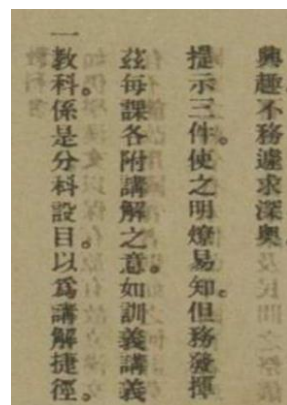 興趣不務遽求深奧。
提示三件使之明燎易知。但務發揮
茲每課各附講解之意。如訓義講義
一教科。係是分科設目。以爲講解捷徑。